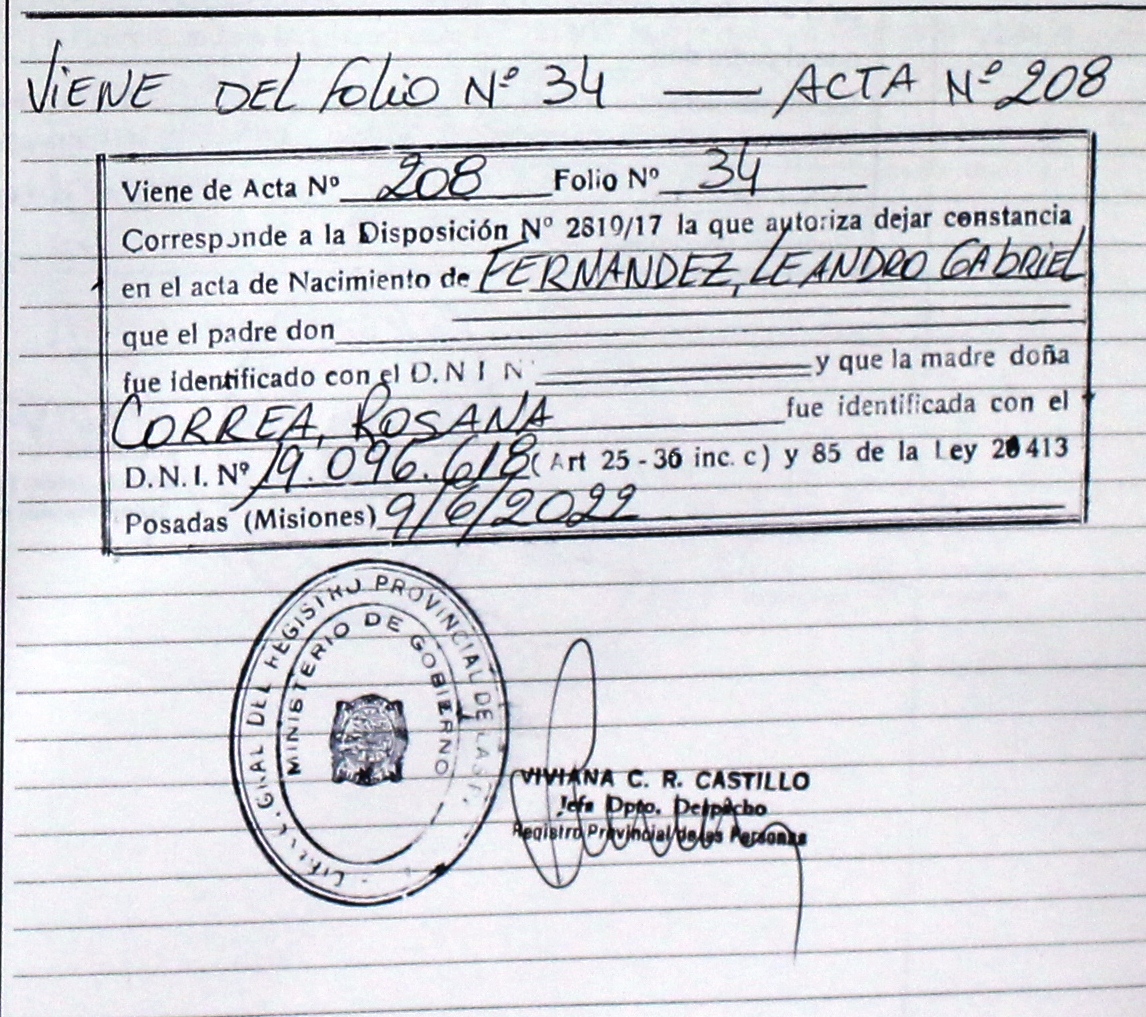 VIENE DEL FOLIO Nº 34 — ACTA Nº 208
Viene de Acta Nº 208 Folio Nº 34
Corresponde a la Disposición Nº 2819/17 la que autoriza dejar constancia
en el acta de Nacimiento de FERNANDEZ, LEANDRO GABRIEL
que el padre don
fue identificado con el D.N I N y que la madre doña
CORREA, ROSANA fue identificada con el
D.N.I. Nº 19.096.618 (Art 25 - 36 inc. c) y 85 de la Ley 26413
Posadas (Misiones) 9/6/2022
GRAL DEL REGISTRO PROVINCIAL DE LAS P.
MINISTERIO DE GOBIERNO
VIVIANA C. R. CASTILLO
Jefa Dpto. Despacho
Registro Provincial de las Personas